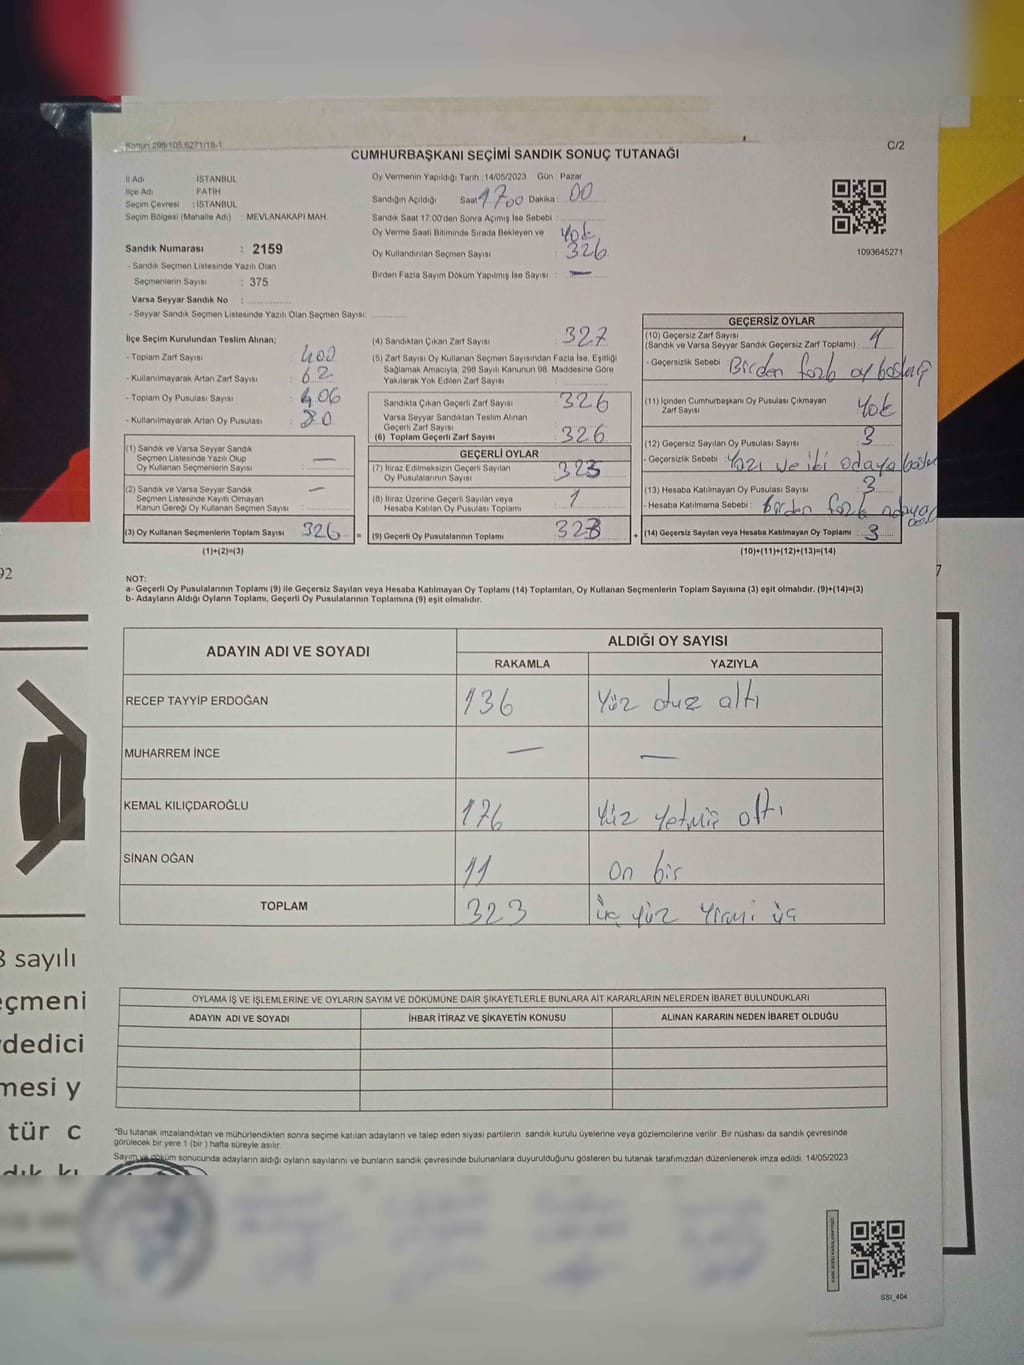 Kanun 298/105,6271/18-1
C/2
CUMHURBAŞKANI SEÇİMİ SANDIK SONUÇ TUTANAĞI
İl Adı : İSTANBUL
İlçe Adı : FATİH
Seçim Çevresi : İSTANBUL
Seçim Bölgesi (Mahalle Adı) : MEVLANAKAPI MAH.
Sandık Numarası : 2159
- Sandık Seçmen Listesinde Yazılı Olan
Seçmenlerin Sayısı : 375
Varsa Seyyar Sandık No :
- Seyyar Sandık Seçmen Listesinde Yazılı Olan Seçmen Sayısı:
Oy Vermenin Yapıldığı Tarih : 14/05/2023 Gün : Pazar
Sandığın Açıldığı Saat 1700 Dakika : 00
Sandık Saat 17.00'den Sonra Açımış İse Sebebi :
Oy Verme Saati Bitiminde Sırada Bekleyen ve Yok
Oy Kullandırılan Seçmen Sayısı : 326
Birden Fazla Sayım Döküm Yapılmış İse Sayısı : —
1093645271
İlçe Seçim Kurulundan Teslim Alınan;
- Toplam Zarf Sayısı : 400
- Kullanılmayarak Artan Zarf Sayısı : 62
- Toplam Oy Pusulası Sayısı : 406
- Kullanılmayarak Artan Oy Pusulası : 80
(1) Sandık ve Varsa Seyyar Sandık
Seçmen Listesinde Yazılı Olup
Oy Kullanan Seçmenlerin Sayısı : —
(2) Sandık ve Varsa Seyyar Sandık
Seçmen Listesinde Kayıtlı Olmayan
Kanun Gereği Oy Kullanan Seçmen Sayısı : —
(3) Oy Kullanan Seçmenlerin Toplam Sayısı : 326
(1)+(2)=(3)
(4) Sandıktan Çıkan Zarf Sayısı : 327
(5) Zarf Sayısı Oy Kullanan Seçmen Sayısından Fazla İse, Eşitliği
Sağlamak Amacıyla, 298 Sayılı Kanunun 98. Maddesine Göre
Yakılarak Yok Edilen Zarf Sayısı :
Sandıkta Çıkan Geçerli Zarf Sayısı : 326
Varsa Seyyar Sandıktan Teslim Alınan
Geçerli Zarf Sayısı :
(6) Toplam Geçerli Zarf Sayısı : 326
GEÇERLİ OYLAR
(7) İtiraz Edilmeksizin Geçerli Sayılan
Oy Pusulalarının Sayısı : 323
(8) İtiraz Üzerine Geçerli Sayılan veya
Hesaba Katılan Oy Pusulası Toplamı : 1
= (9) Geçerli Oy Pusulalarının Toplamı : 323 +
GEÇERSİZ OYLAR
(10) Geçersiz Zarf Sayısı
(Sandık ve Varsa Seyyar Sandık Geçersiz Zarf Toplamı) : 1
- Geçersizlik Sebebi : Birden fazla oy
(11) İçinden Cumhurbaşkanı Oy Pusulası Çıkmayan
Zarf Sayısı : Yok
(12) Geçersiz Sayılan Oy Pusulası Sayısı : 3
- Geçersizlik Sebebi : Yazı ve iki
(13) Hesaba Katılmayan Oy Pusulası Sayısı : 3
- Hesaba Katılmama Sebebi : Birden fazla
(14) Geçersiz Sayılan veya Hesaba Katılmayan Oy Toplamı : 3
(10)+(11)+(12)+(13)=(14)
NOT:
a- Geçerli Oy Pusulalarının Toplamı (9) ile Geçersiz Sayılan veya Hesaba Katılmayan Oy Toplamı (14) Toplamları, Oy Kullanan Seçmenlerin Toplam Sayısına (3) eşit olmalıdır. (9)+(14)=(3)
b- Adayların Aldığı Oyların Toplamı, Geçerli Oy Pusulalarının Toplamına (9) eşit olmalıdır.
ADAYIN ADI VE SOYADI
ALDIĞI OY SAYISI
RAKAMLA YAZIYLA
RECEP TAYYİP ERDOĞAN 136 Yüz otuz altı
MUHARREM İNCE — —
KEMAL KILIÇDAROĞLU 176 Yüz Yetmiş altı
SİNAN OĞAN 11 On bir
TOPLAM 323 üç yüz Yirmi üç
OYLAMA İŞ VE İŞLEMLERİNE VE OYLARIN SAYIM VE DÖKÜMÜNE DAİR ŞİKAYETLERLE BUNLARA AİT KARARLARIN NELERDEN İBARET BULUNDUKLARI
ADAYIN ADI VE SOYADI İHBAR İTİRAZ VE ŞİKAYETİN KONUSU ALINAN KARARIN NEDEN İBARET OLDUĞU
*Bu tutanak imzalandıktan ve mühürlendikten sonra seçime katılan adayların ve talep eden siyasi partilerin sandık kurulu üyelerine veya gözlemcilerine verilir. Bir nüshası da sandık çevresinde
görülecek bir yere 1 (bir) hafta süreyle asılır.
Sayım ve döküm sonucunda adayların aldığı oyların sayılarını ve bunların sandık çevresinde bulunanlara duyurulduğunu gösteren bu tutanak tarafımızdan düzenlenerek imza edildi. 14/05/2023
SSI_404
92
7
sayılı
eçmeni
dedici
mesi y
tür c